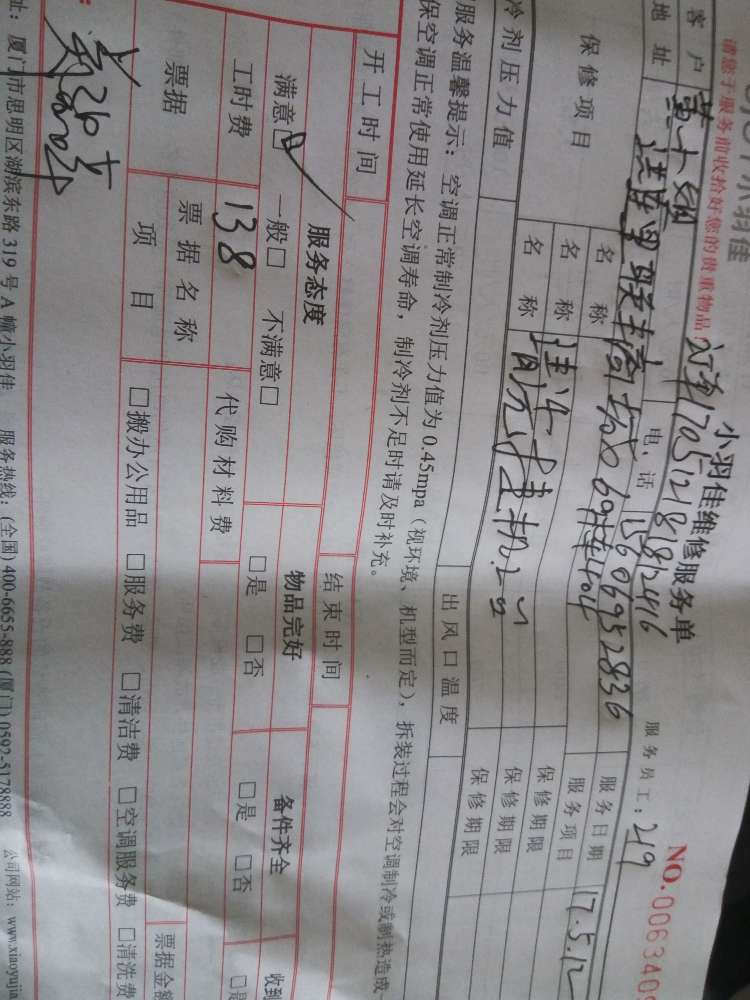 小羽佳
小羽佳维修服务单
NO.006340
请您于服务前收拾好您的贵重物品
订单170512181812416
服务员工：219
客户 电话 15606952836 服务日期 17.5.12
地址 服务项目
保修项目 名称 保修期限
名称 保修期限
名称 挂机2台 保修期限
冷剂压力值 出风口温度
服务温馨提示：空调正常制冷剂压力值为 0.45mpa（视环境、机型而定），拆装过程会对空调制冷或制热造成
保空调正常使用延长空调寿命，制冷剂不足时请及时补充。
开工时间 结束时间
服务态度 物品完好 备件齐全 收到
满意☑ 一般□ 不满意□ □是 □否 □是 □否
工时费 138 代购材料费
票据 票据名称 票据金额
项目 □搬办公用品 □服务费 □清洁费 □空调服务费 □清洗费
址：厦门市思明区湖滨东路 319 号 A 幢小羽佳 服务热线：(全国) 400-6655-888 (厦门) 0592-5178888 公司网站：www.xiaoyujia